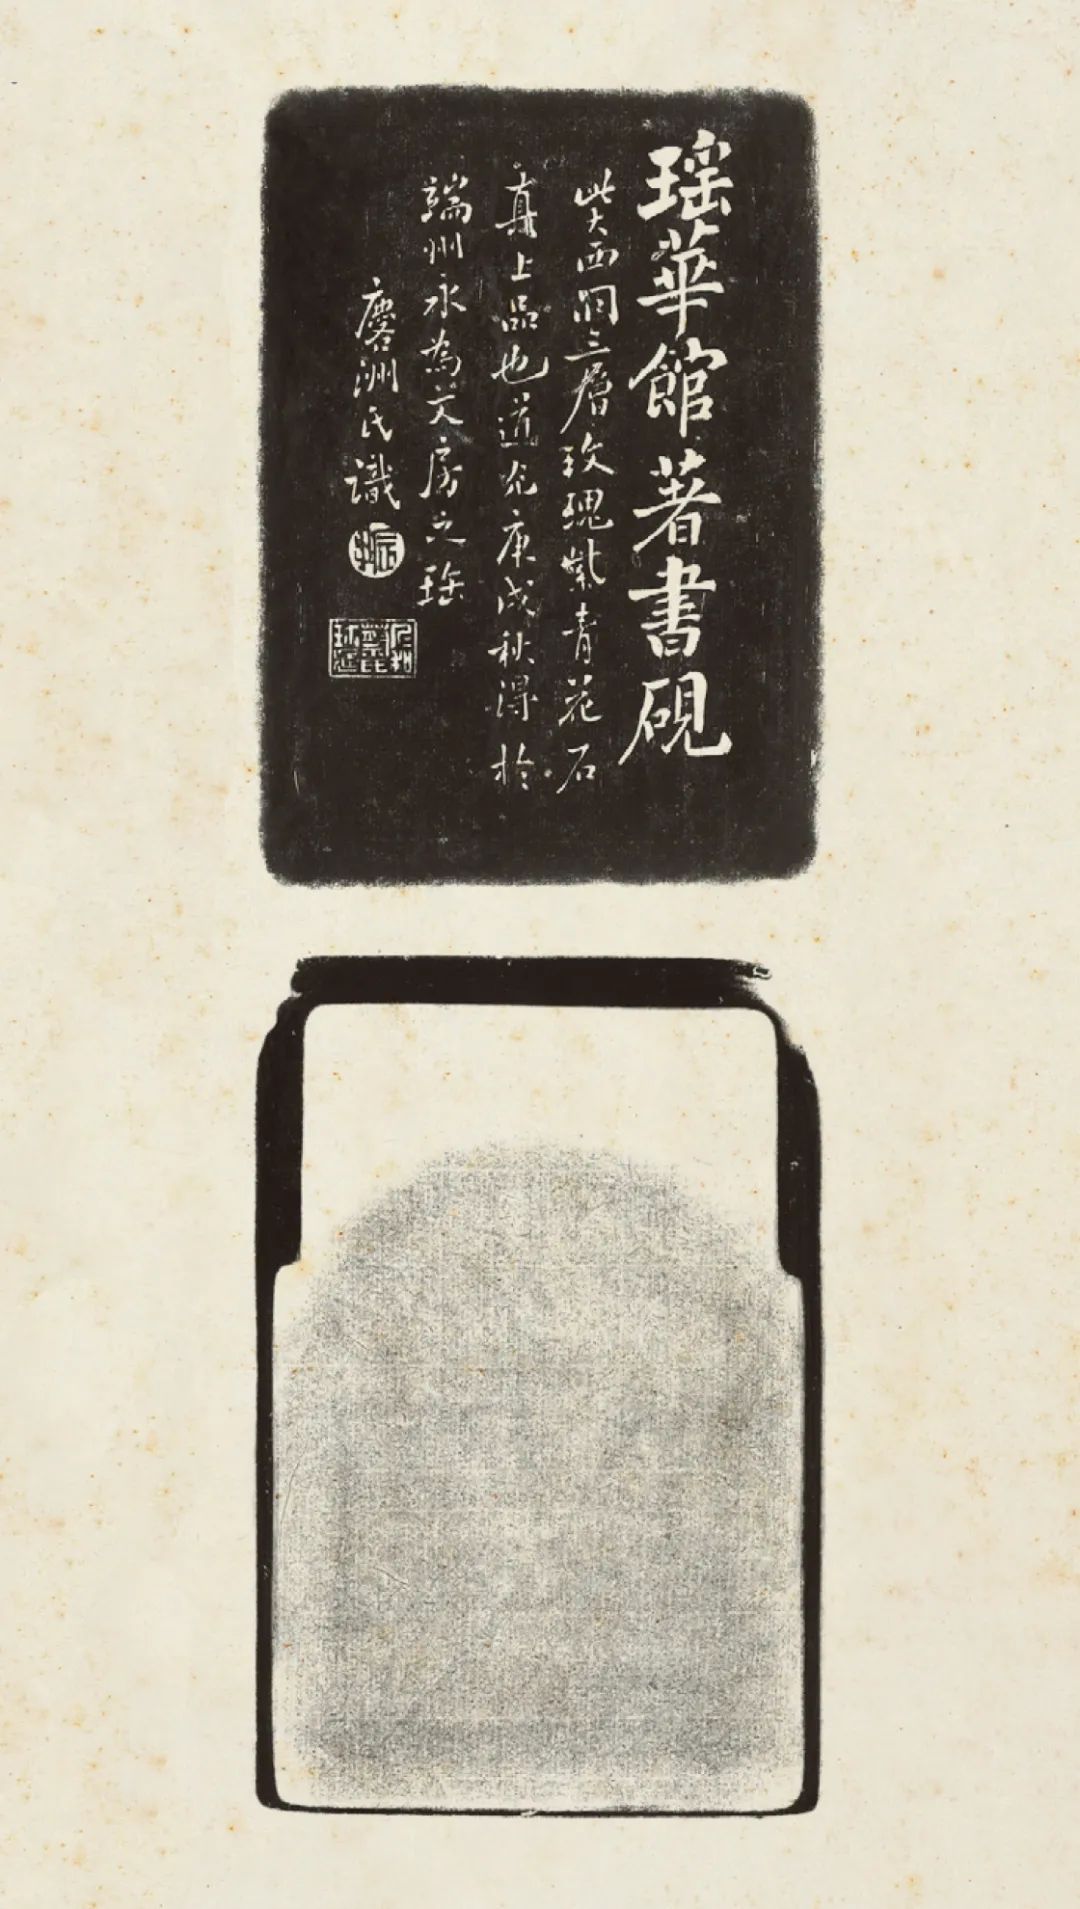 瑶華館著書硯
此大西洞三層玫瑰紫青花石
真上品也道光庚戌秋得於
端州永為文房之珤
麐洲氏識